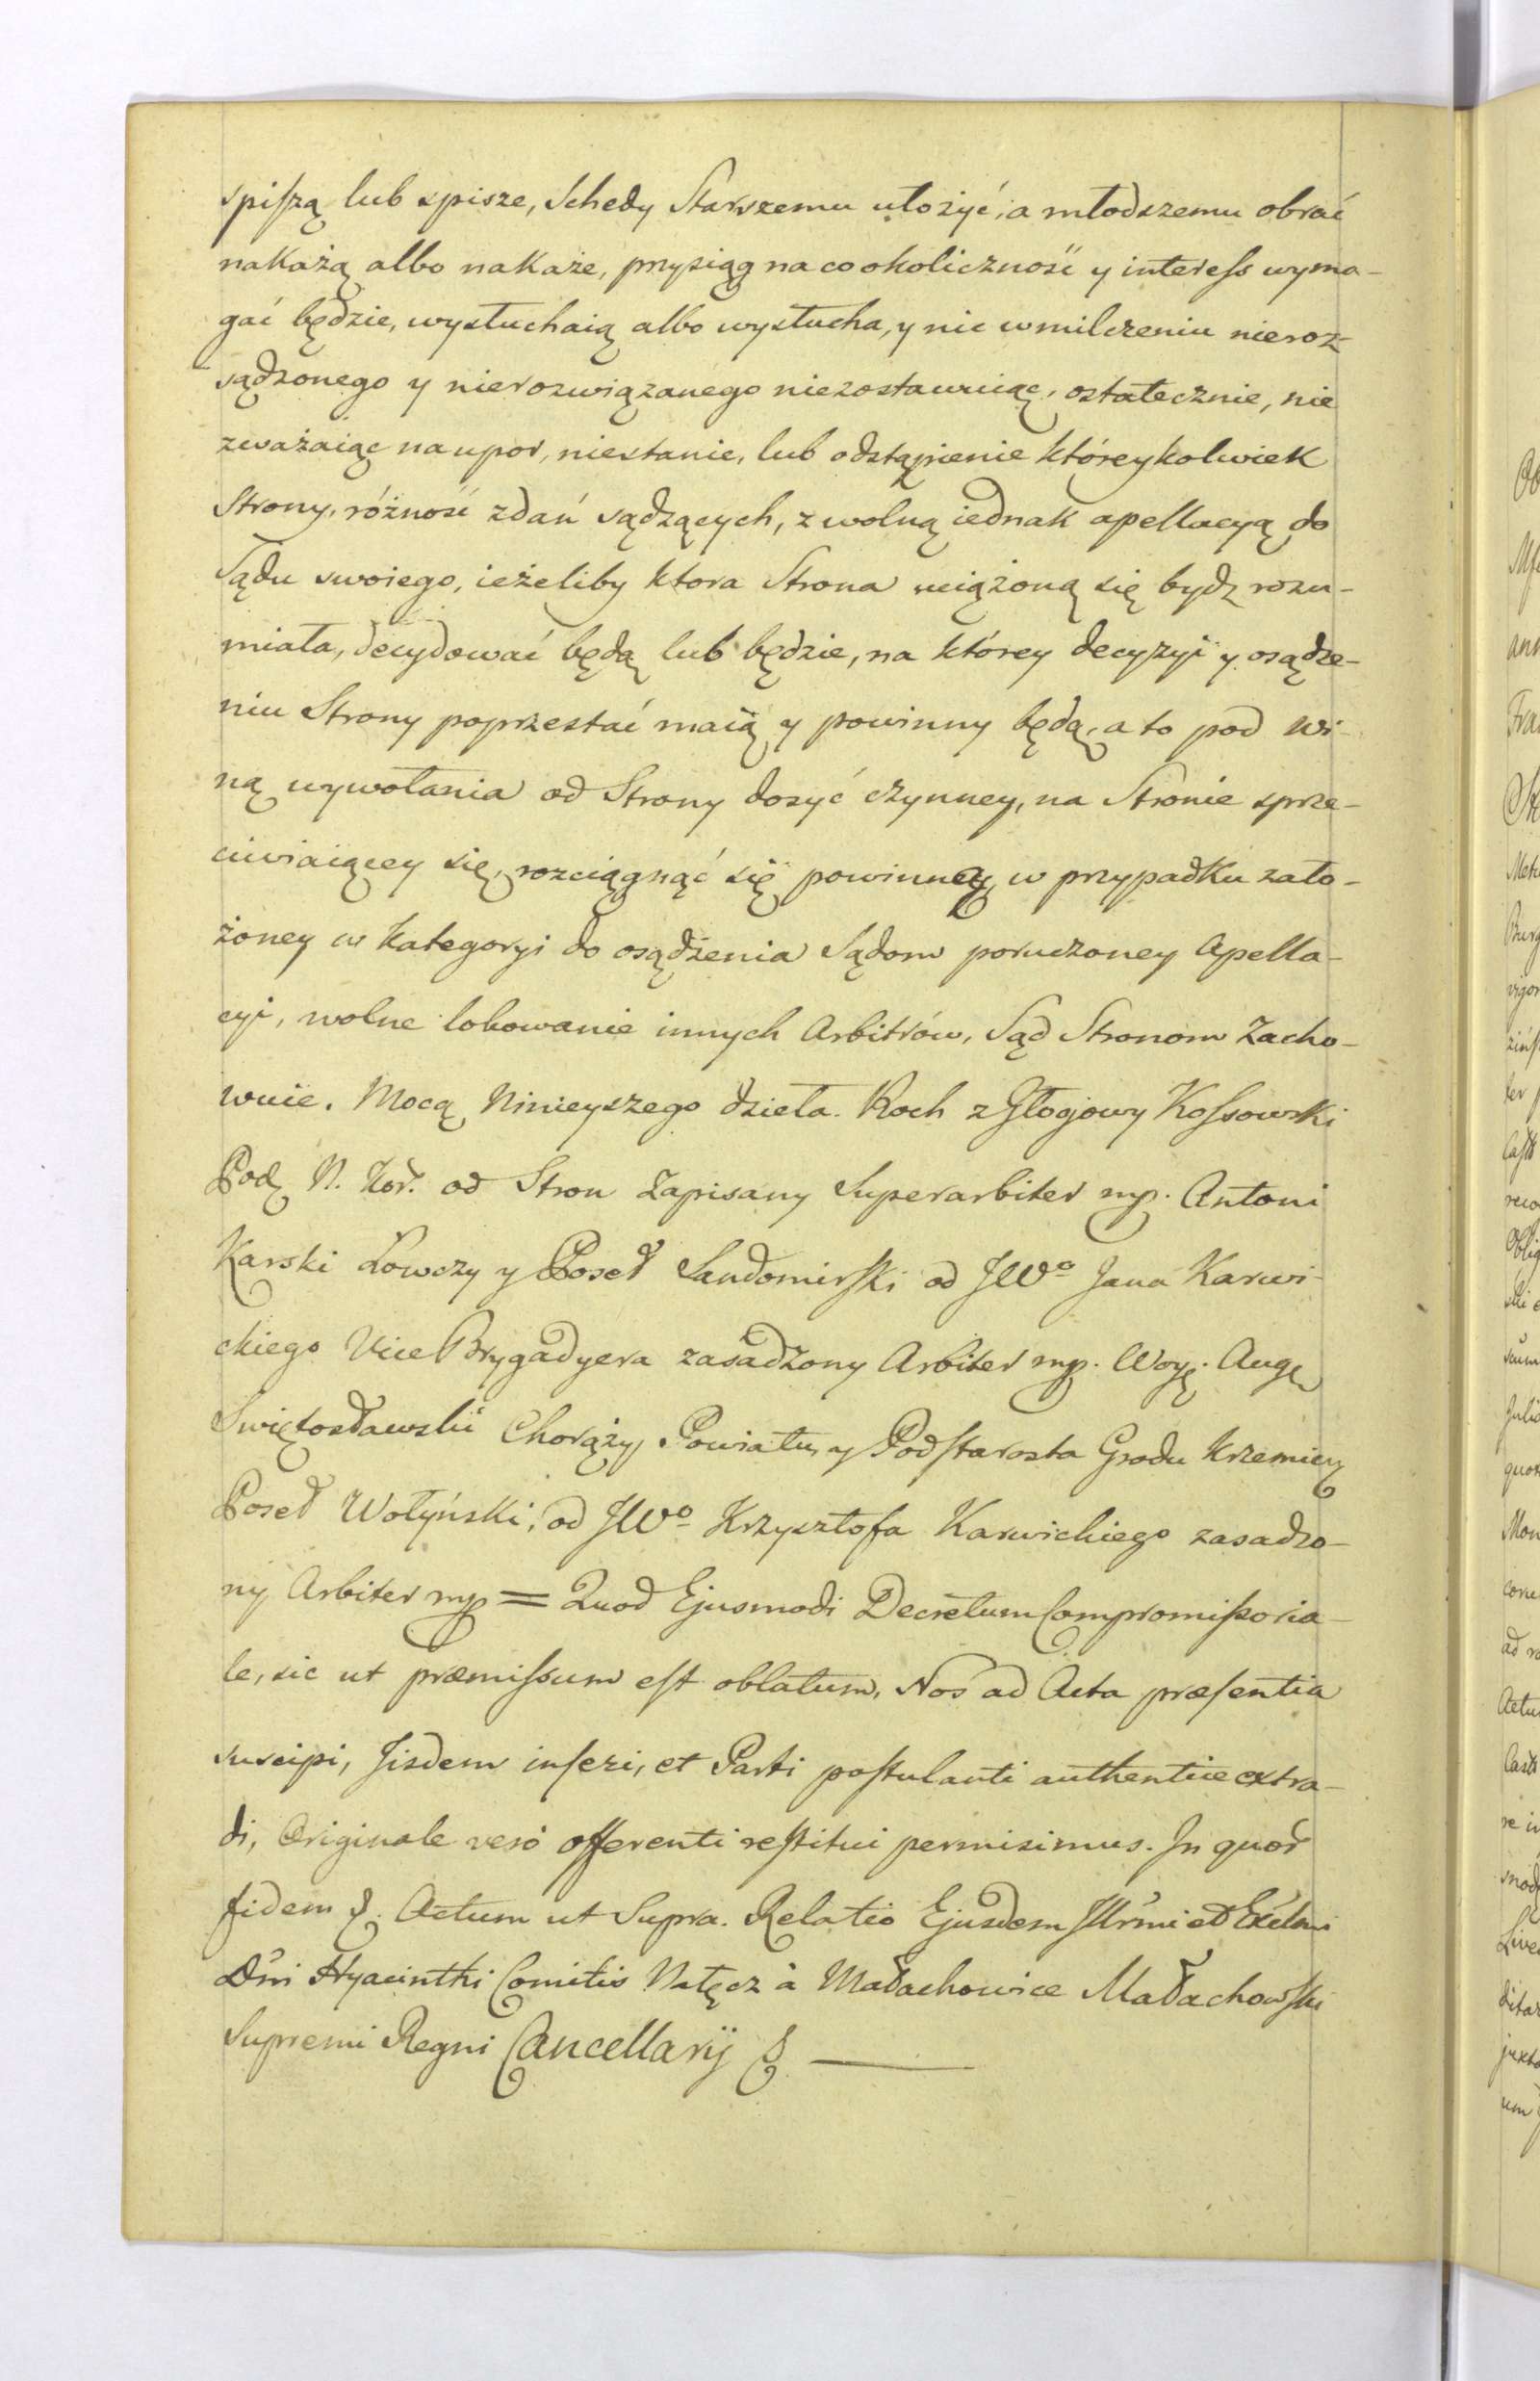 spiszą lub spisze, Schedy Starszemu ułożyć, a młodszemu obrać
nakażą albo nakaże, przysiąg na co okoliczność y interess wyma-
gać będzie, wysłuchaią albo wysłucha, y nic w milczeniu nieroz-
sądzonego y nierozwiązanego niezostawuiąc, ostatecznie, nie
zważaiąc na upor, niestanie, lub odstąpienie któreykolwiek
Strony, różność zdań sądzących, z wolną iednak apellacyą do
Sądu swoiego, ieżeliby ktora Strona uciążoną się bydź rozu-
miała, decydować będą lub będzie, na którey decyzyi y osądze-
niu Strony poprzestać maią y powinny będą, a to pod wi-
ną wywołania od Strony dosyć czynney, na Stronie sprze-
ciwiaiącey się, rozciągnąć się powinney, w przypadku zało-
żoney w kategoryi do osądzenia Sądom poruczoney Apella-
cyi, wolne lokowanie innych Arbitrów, Sąd Stronom Zacho-
wuie. Mocą Ninieyszego dzieła. Roch z Głogowy Kossowski
Pod. N. Kor. od Stron Zapisany Superarbiter mp. Antoni
Karski Łowczy y Poseł Sandomirski od JWo Jana Karwi-
ckiego Vice Brygadyera zasadzony Arbiter mp. Woy. Aug.
Swiętosławski Chorąży Powiatu y Podstarosta Grodu Krzemien.
Poseł Wołyński, od JWo Krzysztofa Karwickiego zasadzo-
ny Arbiter mp = Quod Ejusmodi Decretum Compromissoria-
le, sic ut præmissum est oblatum, Nos ad Acta præsentia
suscipi, Jisdem inseri, et Parti postulanti authentice extra-
di, Originale verò offerenti restitui permisimus. In quor
fidem &. Actum ut Supra. Relatio Ejusdem Jllrmi et Excelmi
Dni Hyacinthi Comitis Nałęcz à Małachowice Małachowski
Supremi Regni Cancellarij &